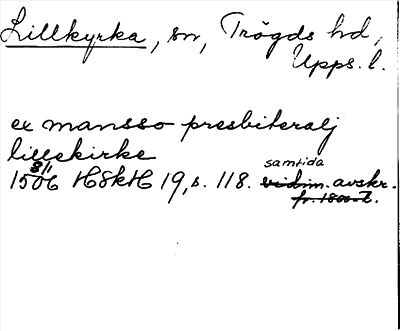 Lillkyrka, sn, Trögds hd,
Upps. l.
ex mansso presbiteralj
lillekirke
1506 8/1 HSkH 19, s. 118. samtida vidim. avskr.
fr. 1800-t.